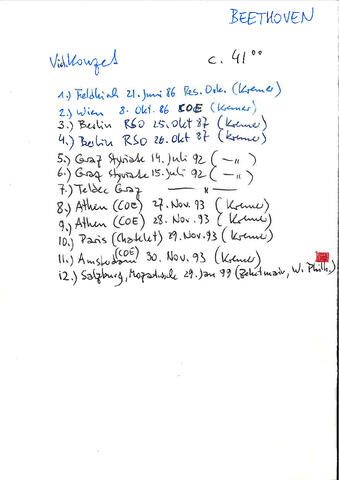 BEETHOVEN
Viol. Konzert c. 41⁰⁰
1.) Feldkirch 21. Juni 86 Res. Ork. (Kremer)
2.) Wien 8. Okt. 86 COE (Kremer)
3.) Berlin RSO 25. Okt 87 (Kremer)
4.) Berlin RSO 26. Okt 87 (Kremer)
5.) Graz Styriate 14. Juli 92 ( —〃— )
6.) Graz Styriate 15. Juli 92 ( —〃— )
7.) Teldec Graz —〃—
8.) Athen (COE) 27. Nov. 93 (Kremer)
9.) Athen (COE) 28. Nov. 93 (Kremer)
10.) Paris (Chatelet) 29. Nov. 93 (Kremer)
11.) Amsterdam (COE) 30. Nov. 93 (Kremer)
12.) Salzburg, Mozartwoche 29. Jan 99 (Zehetmair, W. Philh.)